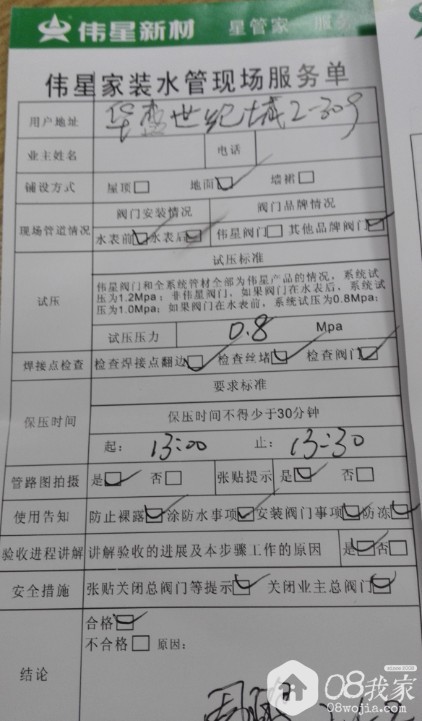 伟星新材 星管家 服务
伟星家装水管现场服务单
用户地址 华盛世纪城2-309
业主姓名 电话
铺设方式 屋顶□ 地面☑ 墙裙□
现场管道情况 阀门安装情况 阀门品牌情况
水表前☑水表后☑ 伟星阀门□其他品牌阀门☑
试压 试压标准
伟星阀门和全系统管材全部为伟星产品的情况,系统试
压为1.2Mpa;非伟星阀门,如果阀门在水表后,系统试
压为1.0Mpa;如果阀门在水表前,系统试压为0.8Mpa;
试压压力 0.8 Mpa
焊接点检查 检查焊接点翻边☑ 检查丝堵☑ 检查阀门☑
保压时间 要求标准
保压时间不得少于30分钟
起:13:00 止:13:30
管路图拍摄 是☑ 否□ 张贴提示 是☑ 否□
使用告知 防止裸露☑涂防水事项☑安装阀门事项☑防冻☑
验收进程讲解 讲解验收的进展及本步骤工作的原因 是☑否□
安全措施 张贴关闭总阀门等提示☑ 关闭业主总阀门☑
结论 合格☑
不合格□ 原因:
08我家
08wojia.com